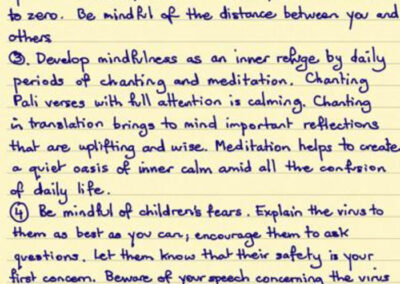 to zero. Be mindful of the distance between you and
others
③. Develop mindfulness as an inner refuge by daily
periods of chanting and meditation. Chanting
Pali verses with full attention is calming. Chanting
in translation brings to mind important reflections
that are uplifting and wise. Meditation helps to create
a quiet oasis of inner calm amid all the confusion
of daily life.
④ Be mindful of children's fears. Explain the virus to
them as best as you can, encourage them to ask
questions. Let them know that their safety is your
first concern. Beware of your speech concerning the virus